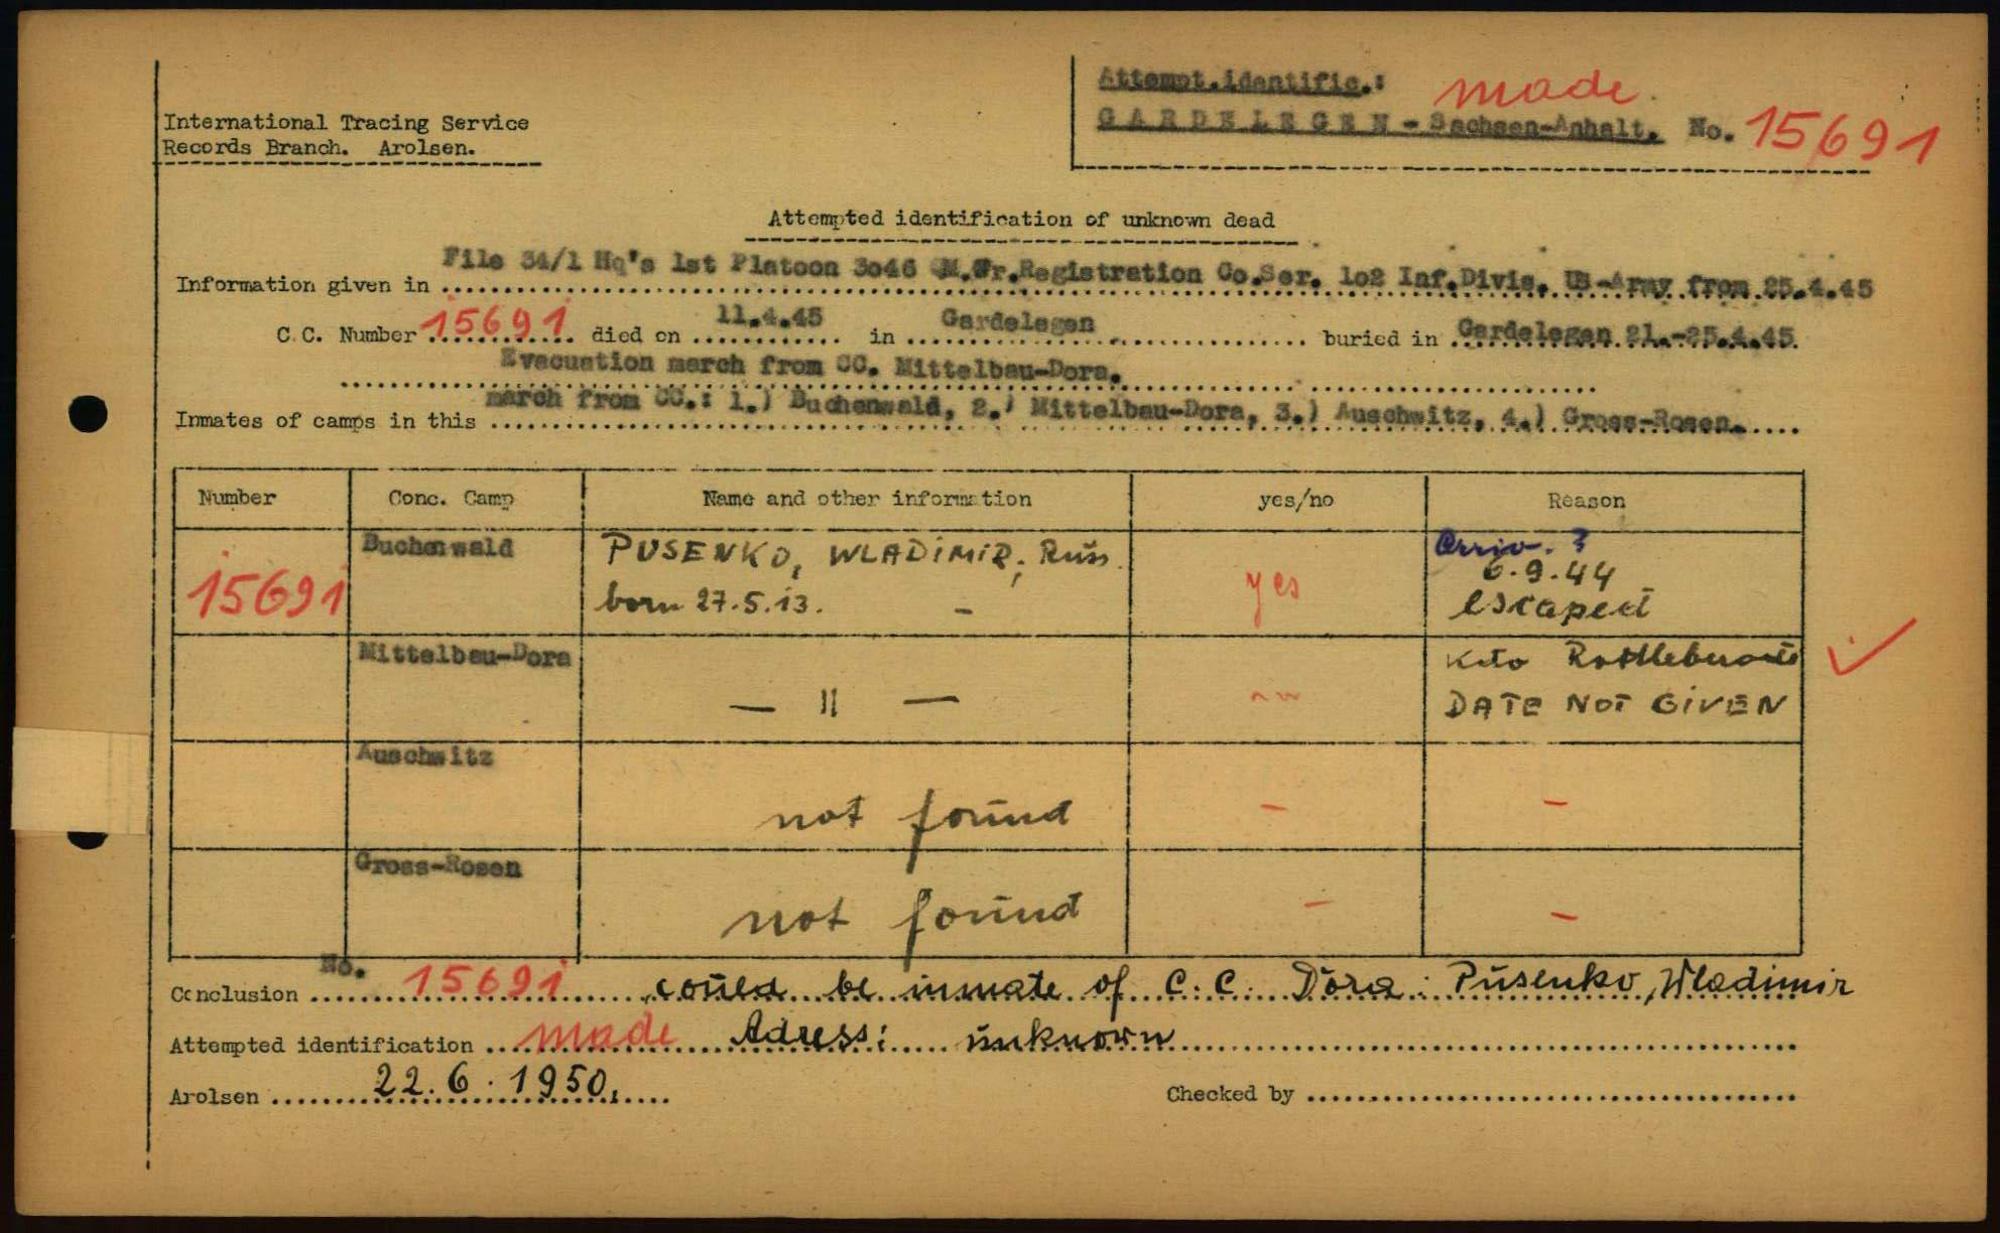 Attempt.identific.: made
International Tracing Service
Records Branch. Arolsen.
GARDELEGEN - Sachsen-Anhalt. No. 15691
Attempted identification of unknown dead
Information given in File 34/1 Hq's 1st Platoon 3o46 QM.Gr.Registration Co.Ser. 1o2 Inf.Divis. US-Army from 25.4.45
C.C. Number 15691 died on 11.4.45 in Gardelegen buried in Gardelegen 21.-25.4.45.
Evacuation march from CC. Mittelbau-Dora.
Inmates of camps in this march from CC.: 1.) Buchenwald, 2.) Mittelbau-Dora, 3.) Auschwitz, 4.) Gross-Rosen.
Number Conc. Camp Name and other information yes/no Reason
15691 Buchenwald PUSENKO, WLADIMIR; Russ. born 27.5.13. - yes Arriv. ? 6.9.44 escaped
Mittelbau-Dora — " — DATE NOT GIVEN
Auschwitz not found - -
Gross-Rosen not found - -
Conclusion No. 15691 could be inmate of C.C. Dora: Pusenko, Wladimir
Attempted identification made Adress: unknown
Arolsen 22.6.1950. Checked by